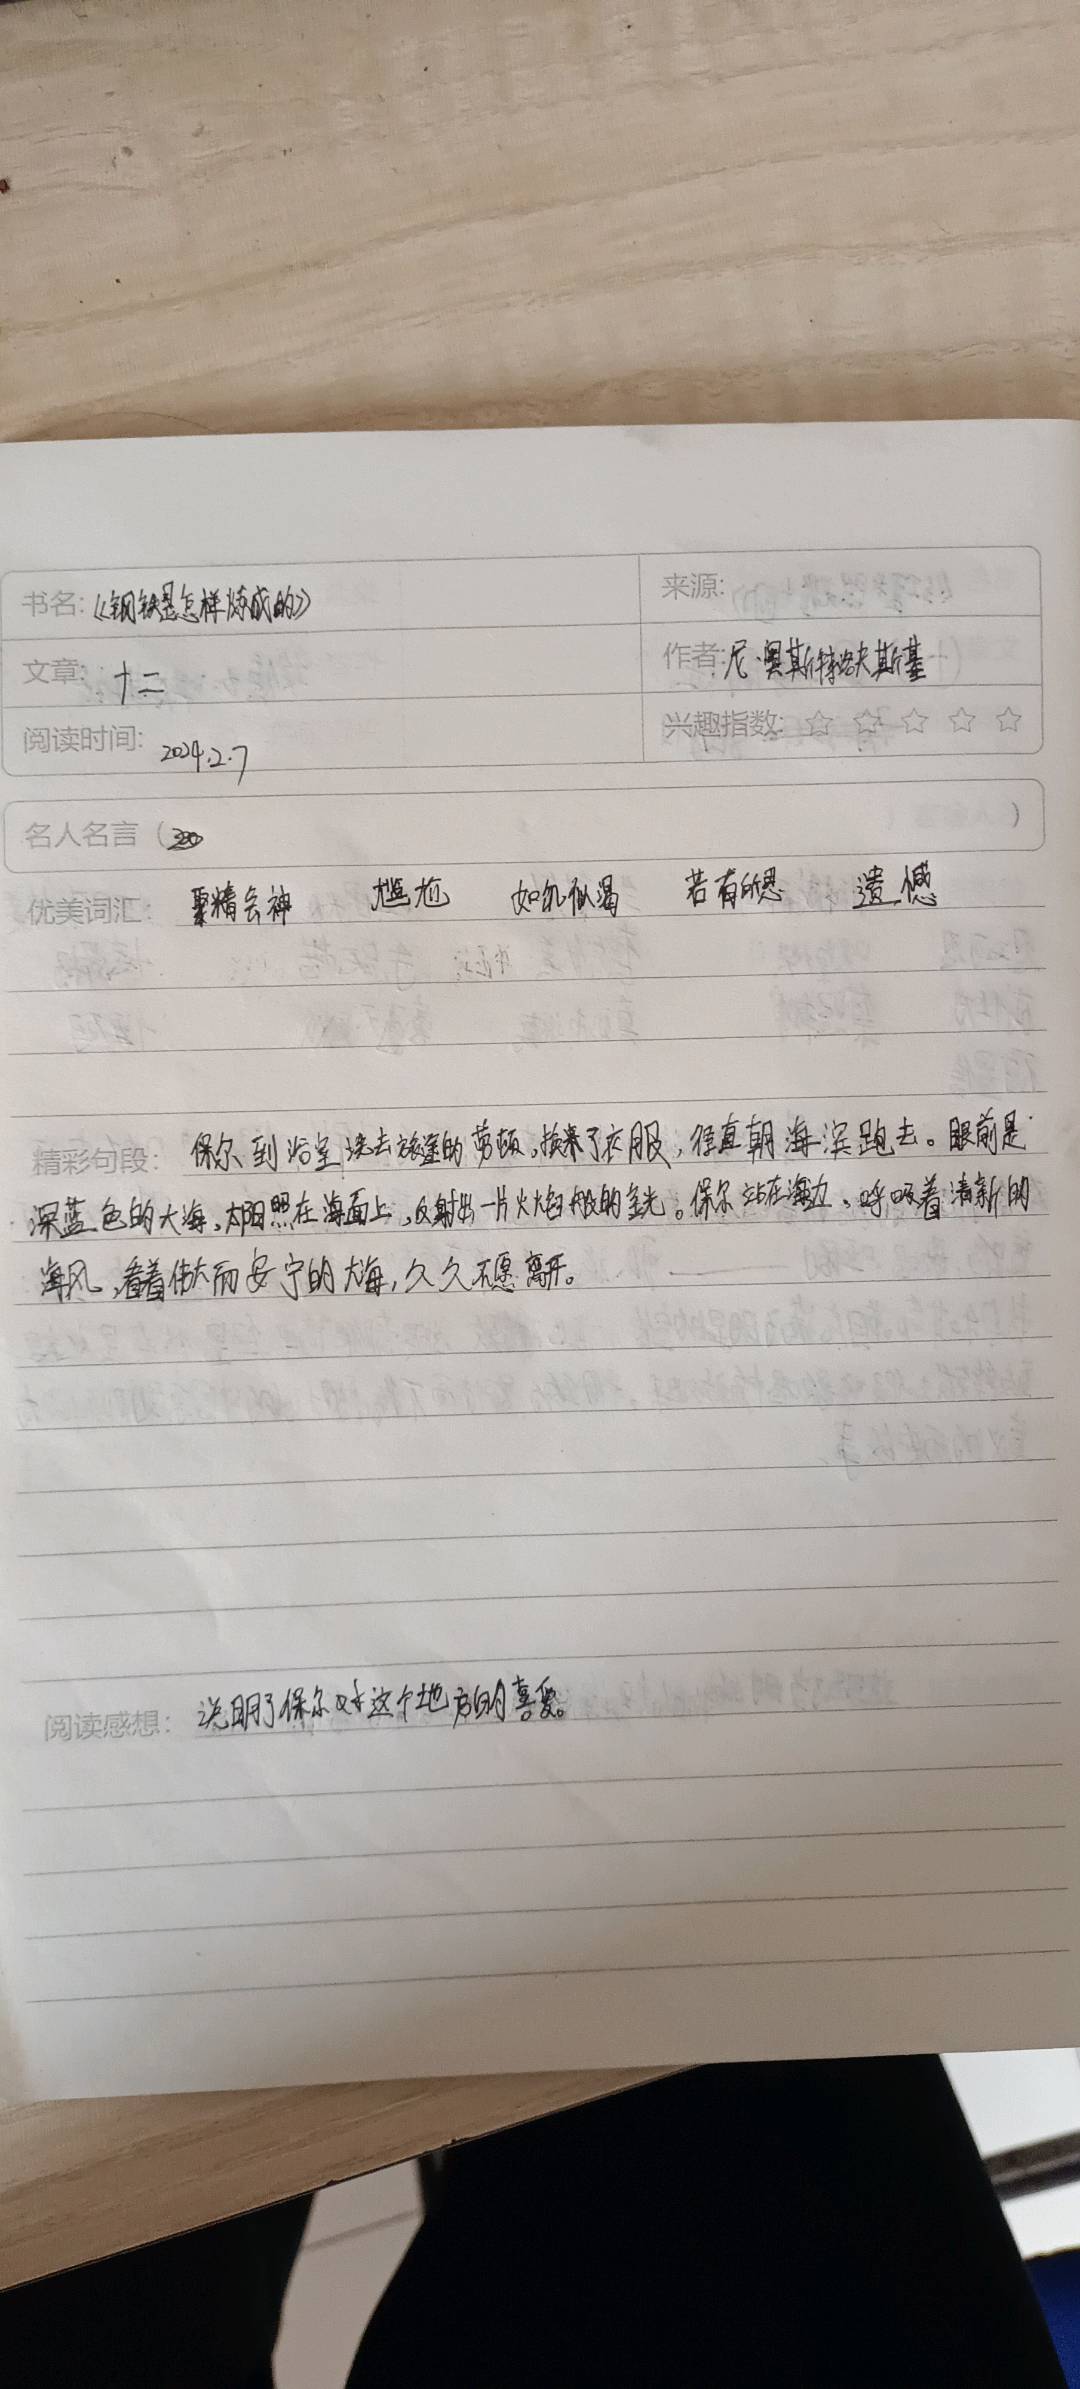 书名:《钢铁是怎样炼成的》
来源:
文章: 十二
作者: 尼·奥斯特洛夫斯基
阅读时间: 2024.2.7
兴趣指数: ☆ ☆ ☆ ☆ ☆
名人名言 ( )
优美词汇: 聚精会神 尴尬 如饥似渴 若有所思 遗憾
精彩句段: 保尔到浴室洗去旅途的劳顿,换了衣服,径直朝海滨跑去。眼前是
深蓝色的大海,太阳照在海面上,反射出一片火焰般的金光。保尔站在海边,呼吸着清新的
海风,看着伟大而安宁的大海,久久不愿离开。
阅读感想: 说明了保尔对这个地方的喜爱。